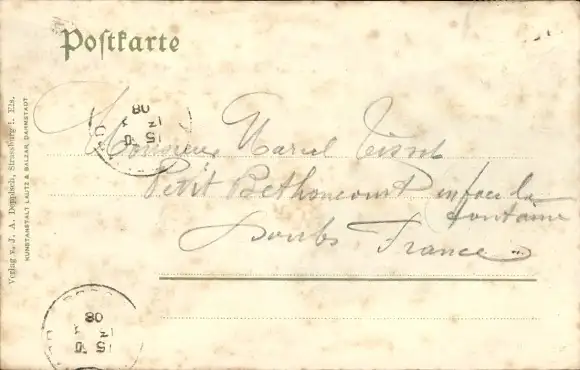 Postkarte
Monsieur Marcel Tissot
Petit Bethoncourt en face la
fontaine
Doubs France
Verlag v. J. A. Deppisch, Strassburg i. Els.
KUNSTANSTALT LAUTZ & BALZAR, DARMSTADT
08
15
08
15